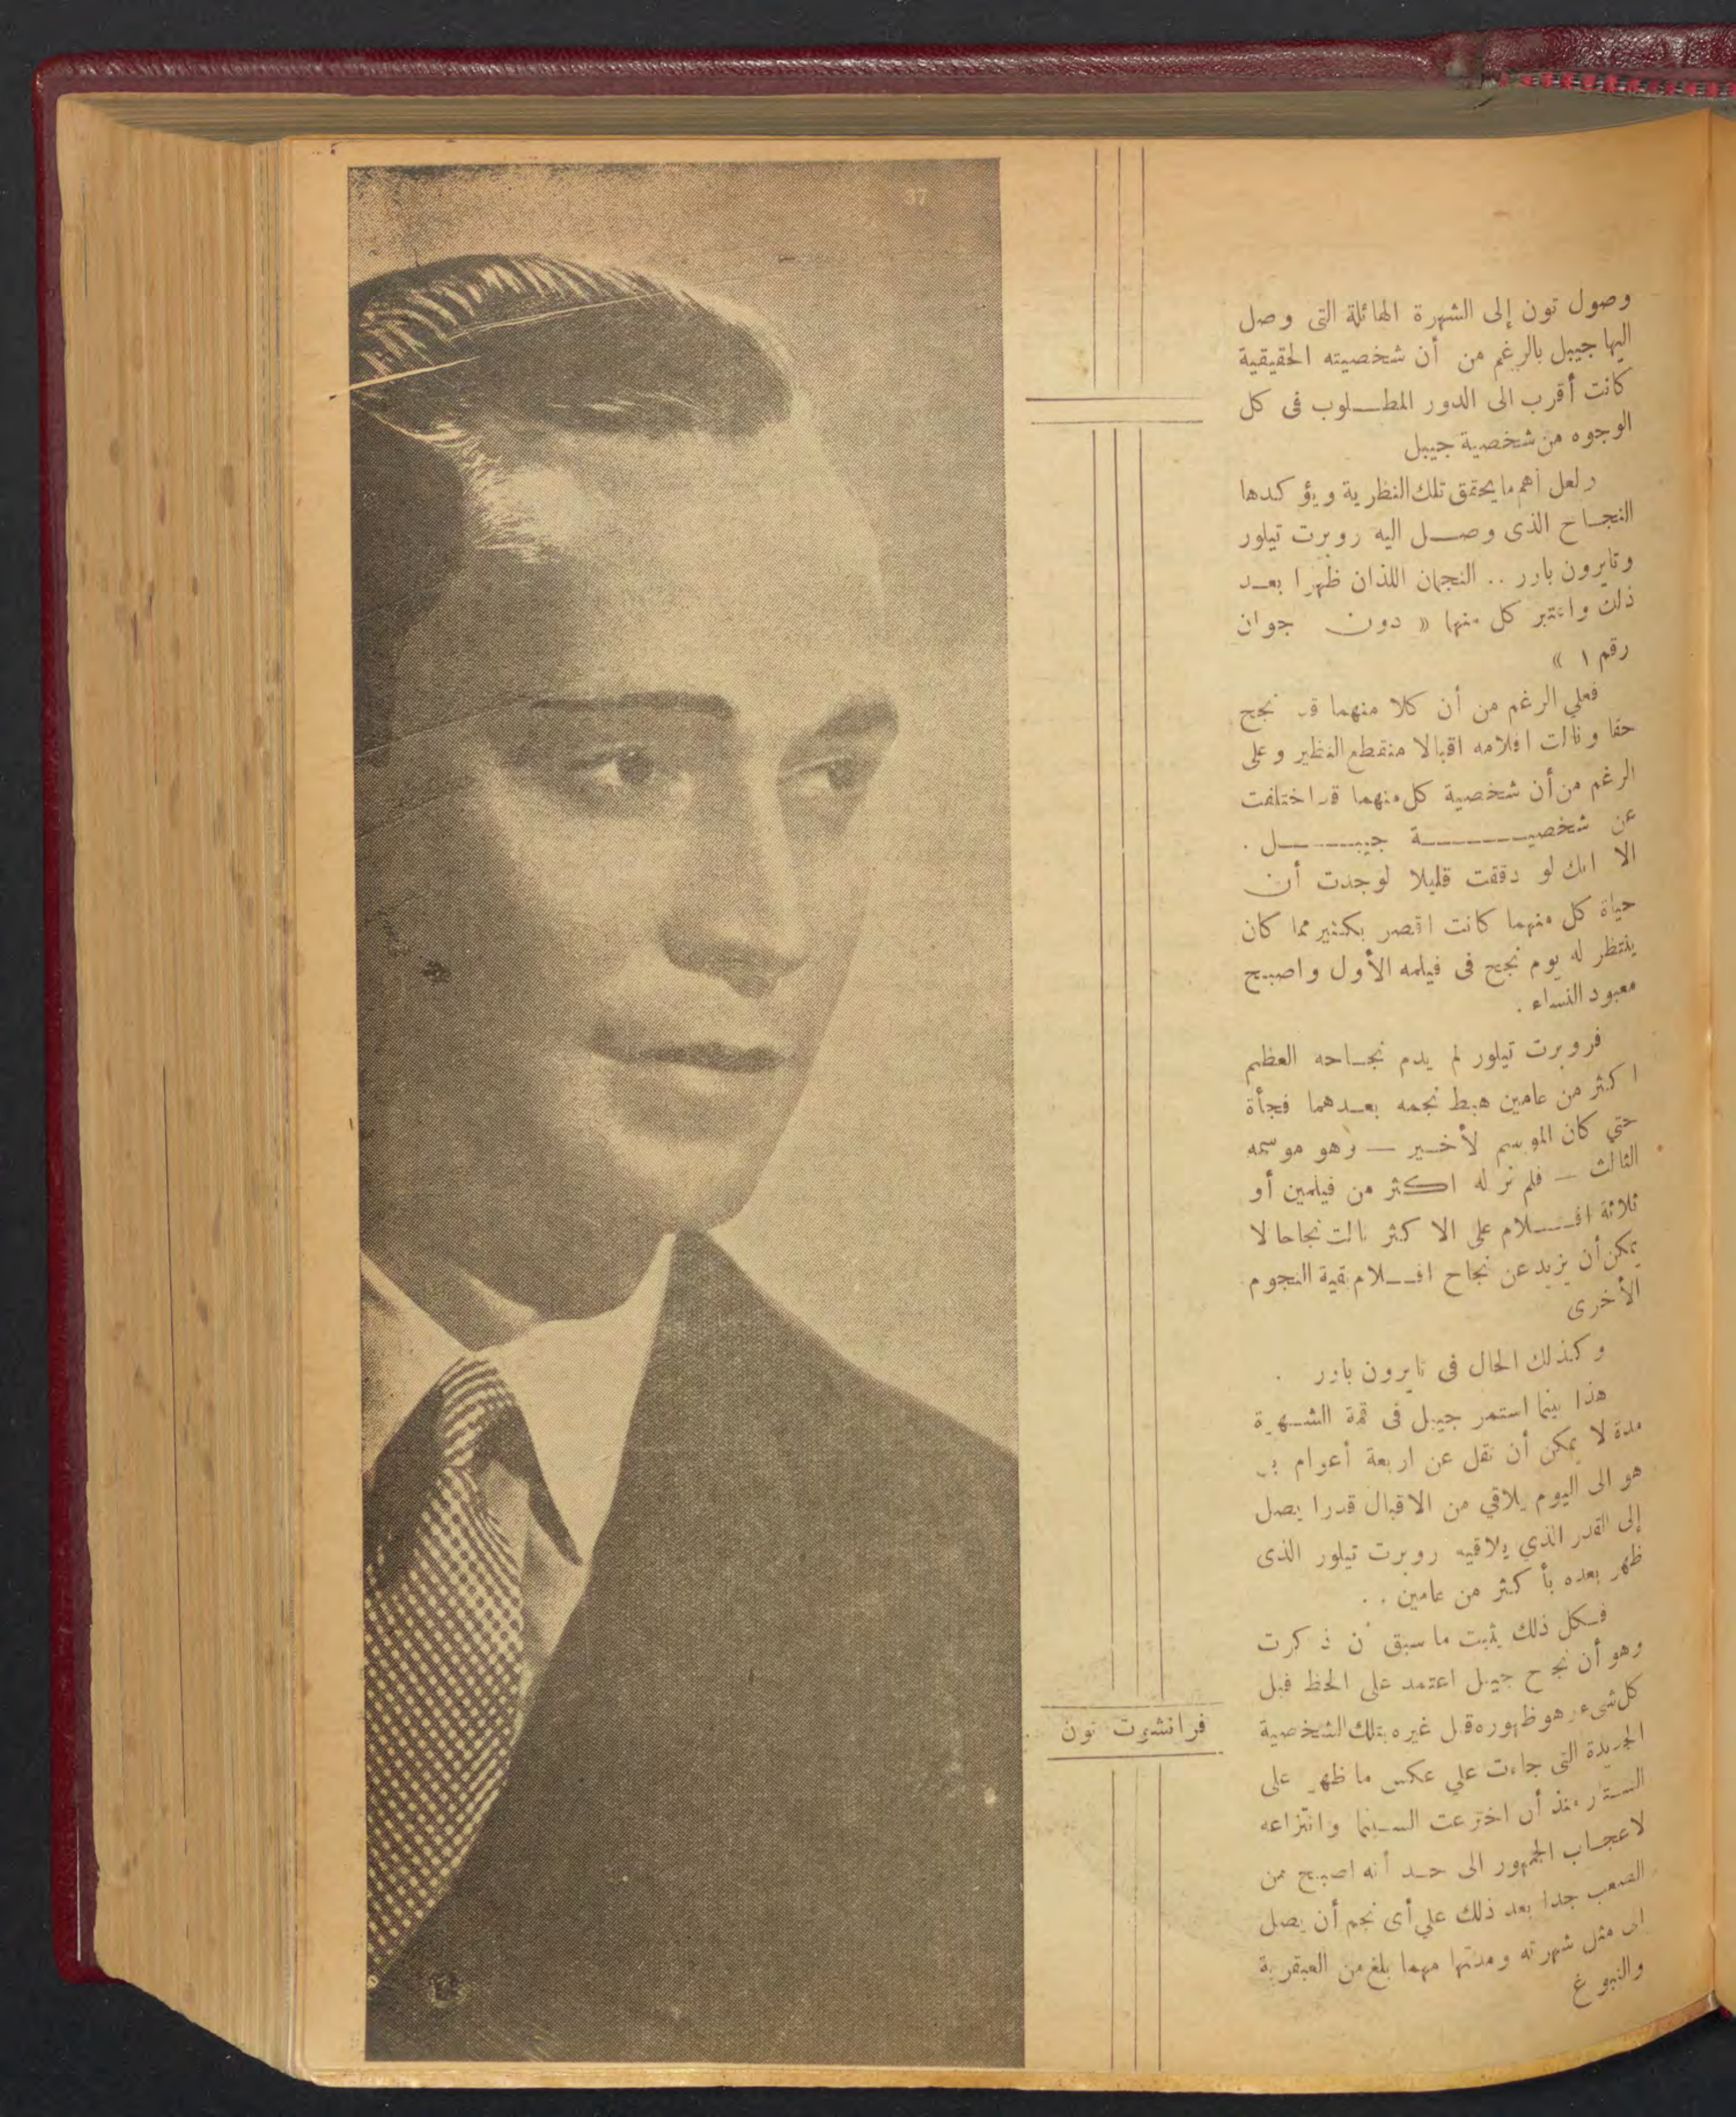 وصول تون إلى الشهرة الهائلة التى وصل
اليها جيبل بالرغم من أن شخصيته الحقيقية
كانت أقرب الى الدور المطلوب فى كل
الوجوه من شخصية جيبل
ولعل أهم ما يحقق تلك النظرية ويؤكدها
النجاح الذى وصل اليه روبرت تيلور
وتايرون باور .. النجمان اللذان ظهرا بعد
ذلك واعتبر كل منهما « دون جوان
رقم ١ »
فعلي الرغم من أن كلا منهما قد نجح
حقا ونالت افلامه اقبالا منقطع النظير وعلى
الرغم من أن شخصية كل منهما قد اختلفت
عن شخصية جيبل .
الا انك لو دققت قليلا لوجدت أن
حياة كل منهما كانت اقصر بكثير مما كان
ينتظر له يوم نجح فى فيلمه الأول واصبح
معبود النساء .
فروبرت تيلور لم يدم نجاحه العظيم
اكثر من عامين هبط نجمه بعدهما فجأة
حتي كان الموسم لأخير — وهو موسمه
الثالث — فلم نر له اكثر من فيلمين أو
ثلاثة افلام على الاكثر نالت نجاحا لا
يمكن أن يزيد عن نجاح افلام بقية النجوم
الأخرى
وكذلك الحال فى تايرون باور .
هذا بينما استمر جيبل فى قمة الشهرة
مدة لا يمكن أن تقل عن اربعة أعوام بل
هو الى اليوم يلاقي من الاقبال قدرا يصل
إلى القدر الذي يلاقيه روبرت تيلور الذى
ظهر بعده بأكثر من عامين ..
فكل ذلك يثبت ما سبق أن ذكرت
وهو أن نجاح جيبل اعتمد على الحظ قبل
كل شىء وهو ظهوره قبل غيره بتلك الشخصية
الجديدة التى جاءت علي عكس ما ظهر على
الستار منذ أن اخترعت السينما وانتزاعه
لاعجاب الجمهور الى حد أنه اصبح من
الصعب جدا بعد ذلك علي أى نجم أن يصل
الى مثل شهرته ومدتها مهما بلغ من العبقرية
والنبوغ
فرانشوت تون
37